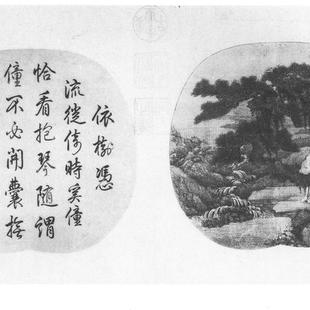 依樹憑
流從倚時笑僮
恰看抱琴隨謂
僮不必開囊撫